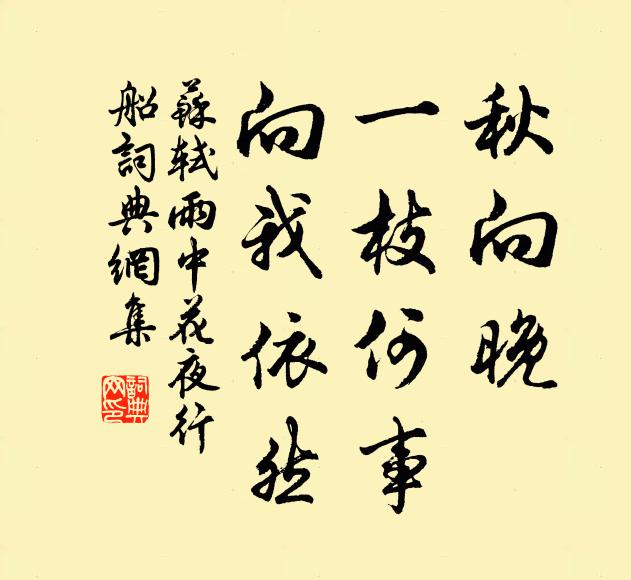 秋向晚
一枝何事
向我依然
蘇軾雨中花夜行
船詞典網集
詞典
网印